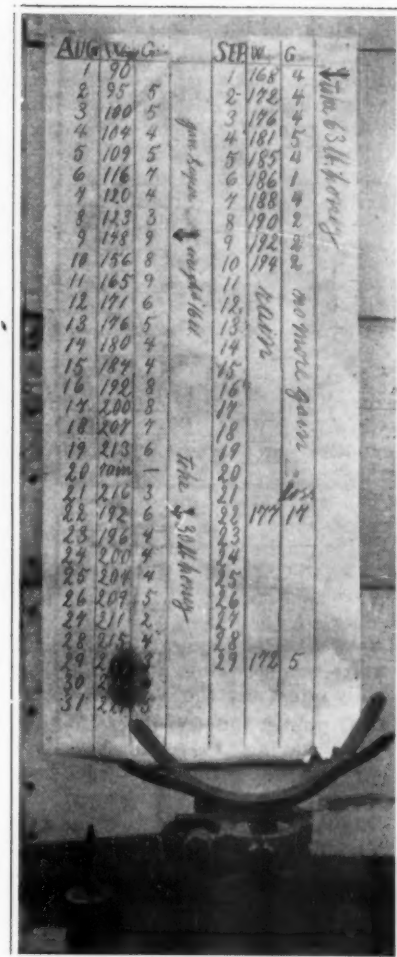 AUG W G
1 90
2 95 5
3 100 5
4 104 4
5 109 5
6 116 7
7 120 4
8 123 3
9 148 9
10 156 8
11 165 9
12 171 6
13 176 5
14 180 4
15 184 4
16 192 8
17 200 8
18 207 7
19 213 6
20 rain —
21 216 3
22 192 6
23 196 4
24 200 4
25 204 4
26 209 5
27 211 2
28 215 4
29
30
31
weight 16 lb
Take 30 lb honey
SEP W G
1 168 4
2 172 4
3 176 4
4 181 5
5 185 4
6 186 1
7 188 4
8 190 2
9 192 2
10 194 2
11
12
13
14
15
16
17
18
19
20
21 loss
22 177 17
23
24
25
26
27
28
29 172 5
rain
no more gain
63 lb honey